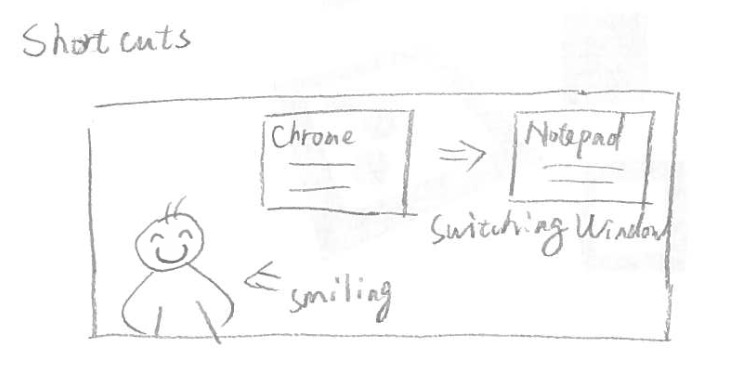 Shortcuts
Chrome
Notepad
Switching Window
smiling